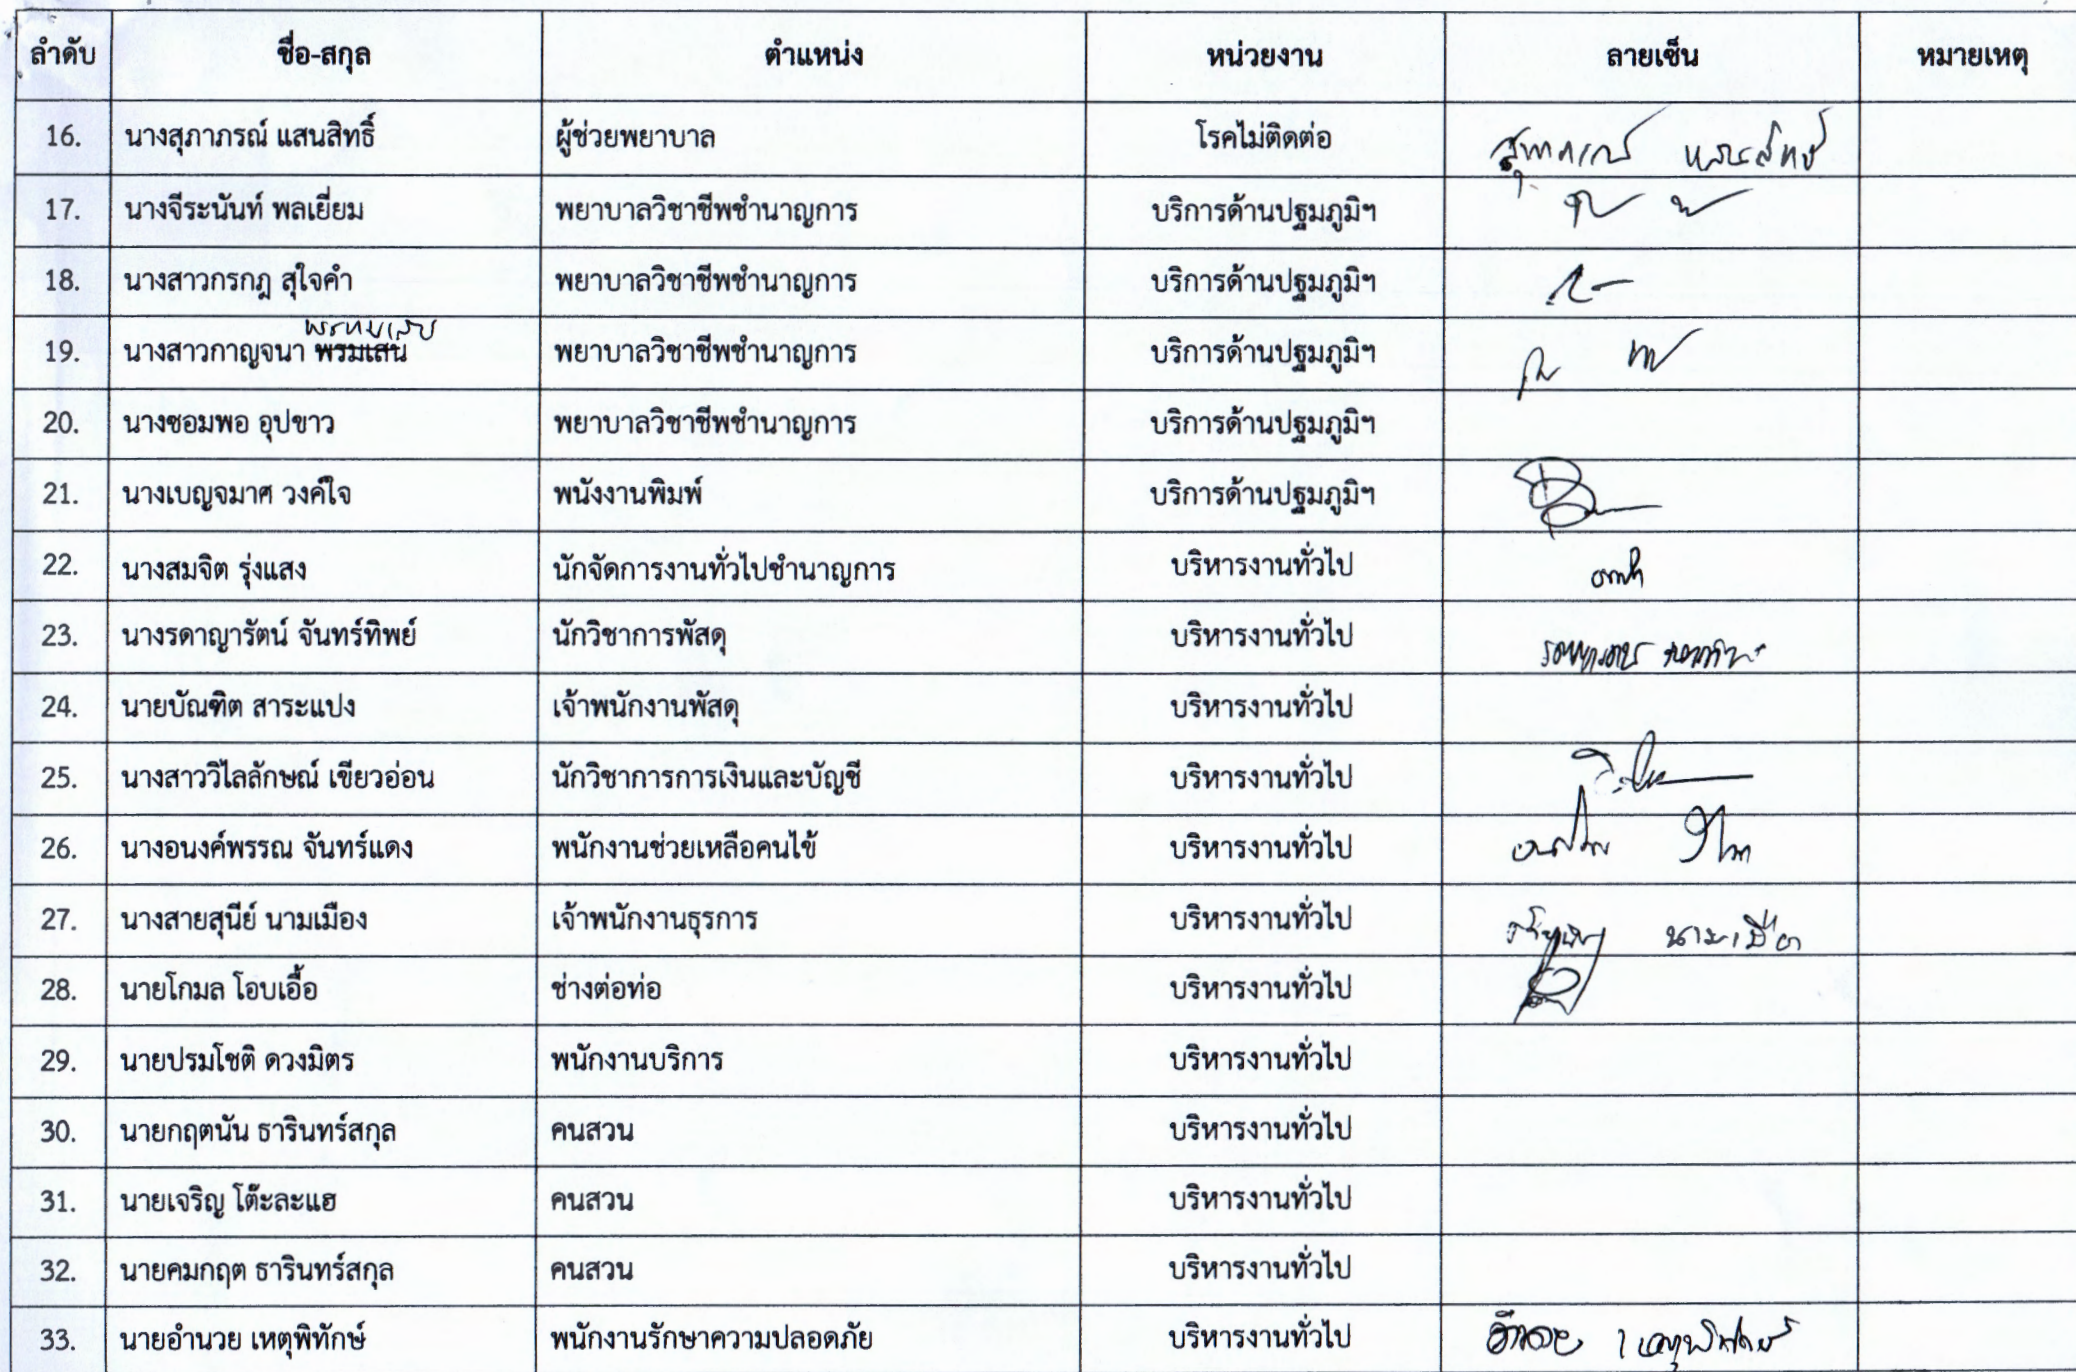 ลำดับ ชื่อ-สกุล ตำแหน่ง หน่วยงาน ลายเซ็น หมายเหตุ
16. นางสุภาภรณ์ แสนสิทธิ์ ผู้ช่วยพยาบาล โรคไม่ติดต่อ สุภาภรณ์ แสนสิทธิ์
17. นางจีระนันท์ พลเยี่ยม พยาบาลวิชาชีพชำนาญการ บริการด้านปฐมภูมิฯ
18. นางสาวกรกฎ สุใจคำ พยาบาลวิชาชีพชำนาญการ บริการด้านปฐมภูมิฯ
19. นางสาวกาญจนา พรมเสน พยาบาลวิชาชีพชำนาญการ บริการด้านปฐมภูมิฯ
20. นางซอมพอ อุปขาว พยาบาลวิชาชีพชำนาญการ บริการด้านปฐมภูมิฯ
21. นางเบญจมาศ วงค์ใจ พนังงานพิมพ์ บริการด้านปฐมภูมิฯ
22. นางสมจิต รุ่งแสง นักจัดการงานทั่วไปชำนาญการ บริหารงานทั่วไป
23. นางรดาญารัตน์ จันทร์ทิพย์ นักวิชาการพัสดุ บริหารงานทั่วไป
24. นายบัณฑิต สาระแปง เจ้าพนักงานพัสดุ บริหารงานทั่วไป
25. นางสาววิไลลักษณ์ เขียวอ่อน นักวิชาการการเงินและบัญชี บริหารงานทั่วไป
26. นางอนงค์พรรณ จันทร์แดง พนักงานช่วยเหลือคนไข้ บริหารงานทั่วไป
27. นางสายสุนีย์ นามเมือง เจ้าพนักงานธุรการ บริหารงานทั่วไป
28. นายโกมล โอบเอื้อ ช่างต่อท่อ บริหารงานทั่วไป
29. นายปรมโชติ ดวงมิตร พนักงานบริการ บริหารงานทั่วไป
30. นายกฤตนัน ธารินทร์สกุล คนสวน บริหารงานทั่วไป
31. นายเจริญ โต๊ะละแฮ คนสวน บริหารงานทั่วไป
32. นายคมกฤต ธารินทร์สกุล คนสวน บริหารงานทั่วไป
33. นายอำนวย เหตุพิทักษ์ พนักงานรักษาความปลอดภัย บริหารงานทั่วไป